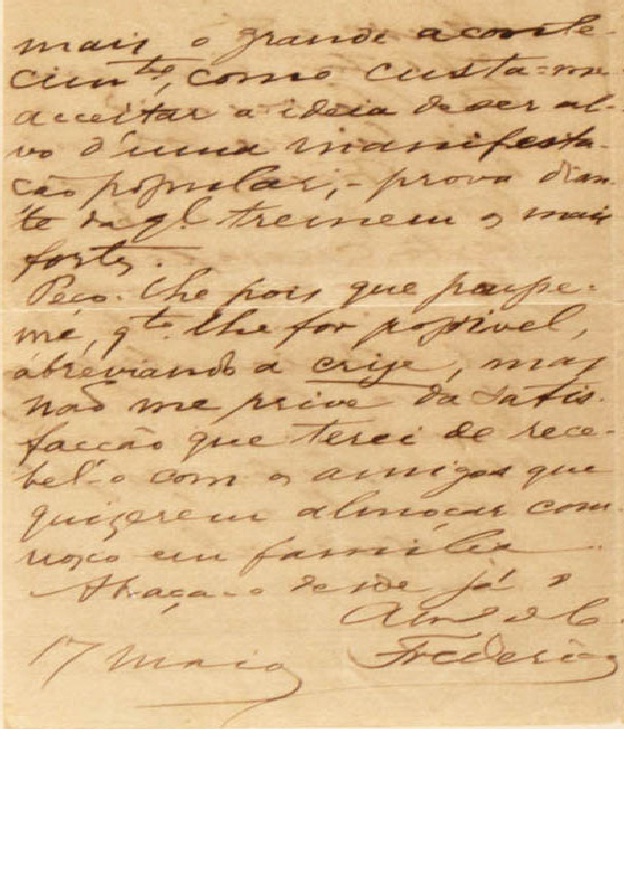 mais o grande aconte-
cimto, como custa-me
acceitar a ideia de ser al-
vo d'uma manifesta-
ção popular, - prova dian-
te da ql. tremem os mais
fortes.
Peço-lhe pois que poupe-
me, qto lhe for possivel,
abreviando a crise, mas
não me prive da satis-
facção que terei de rece-
bel-o com os amigos que
quizerem almoçar com-
nosco em familia.
Abraça-o desde já o
Amo e C.
Frederico
17 Maio